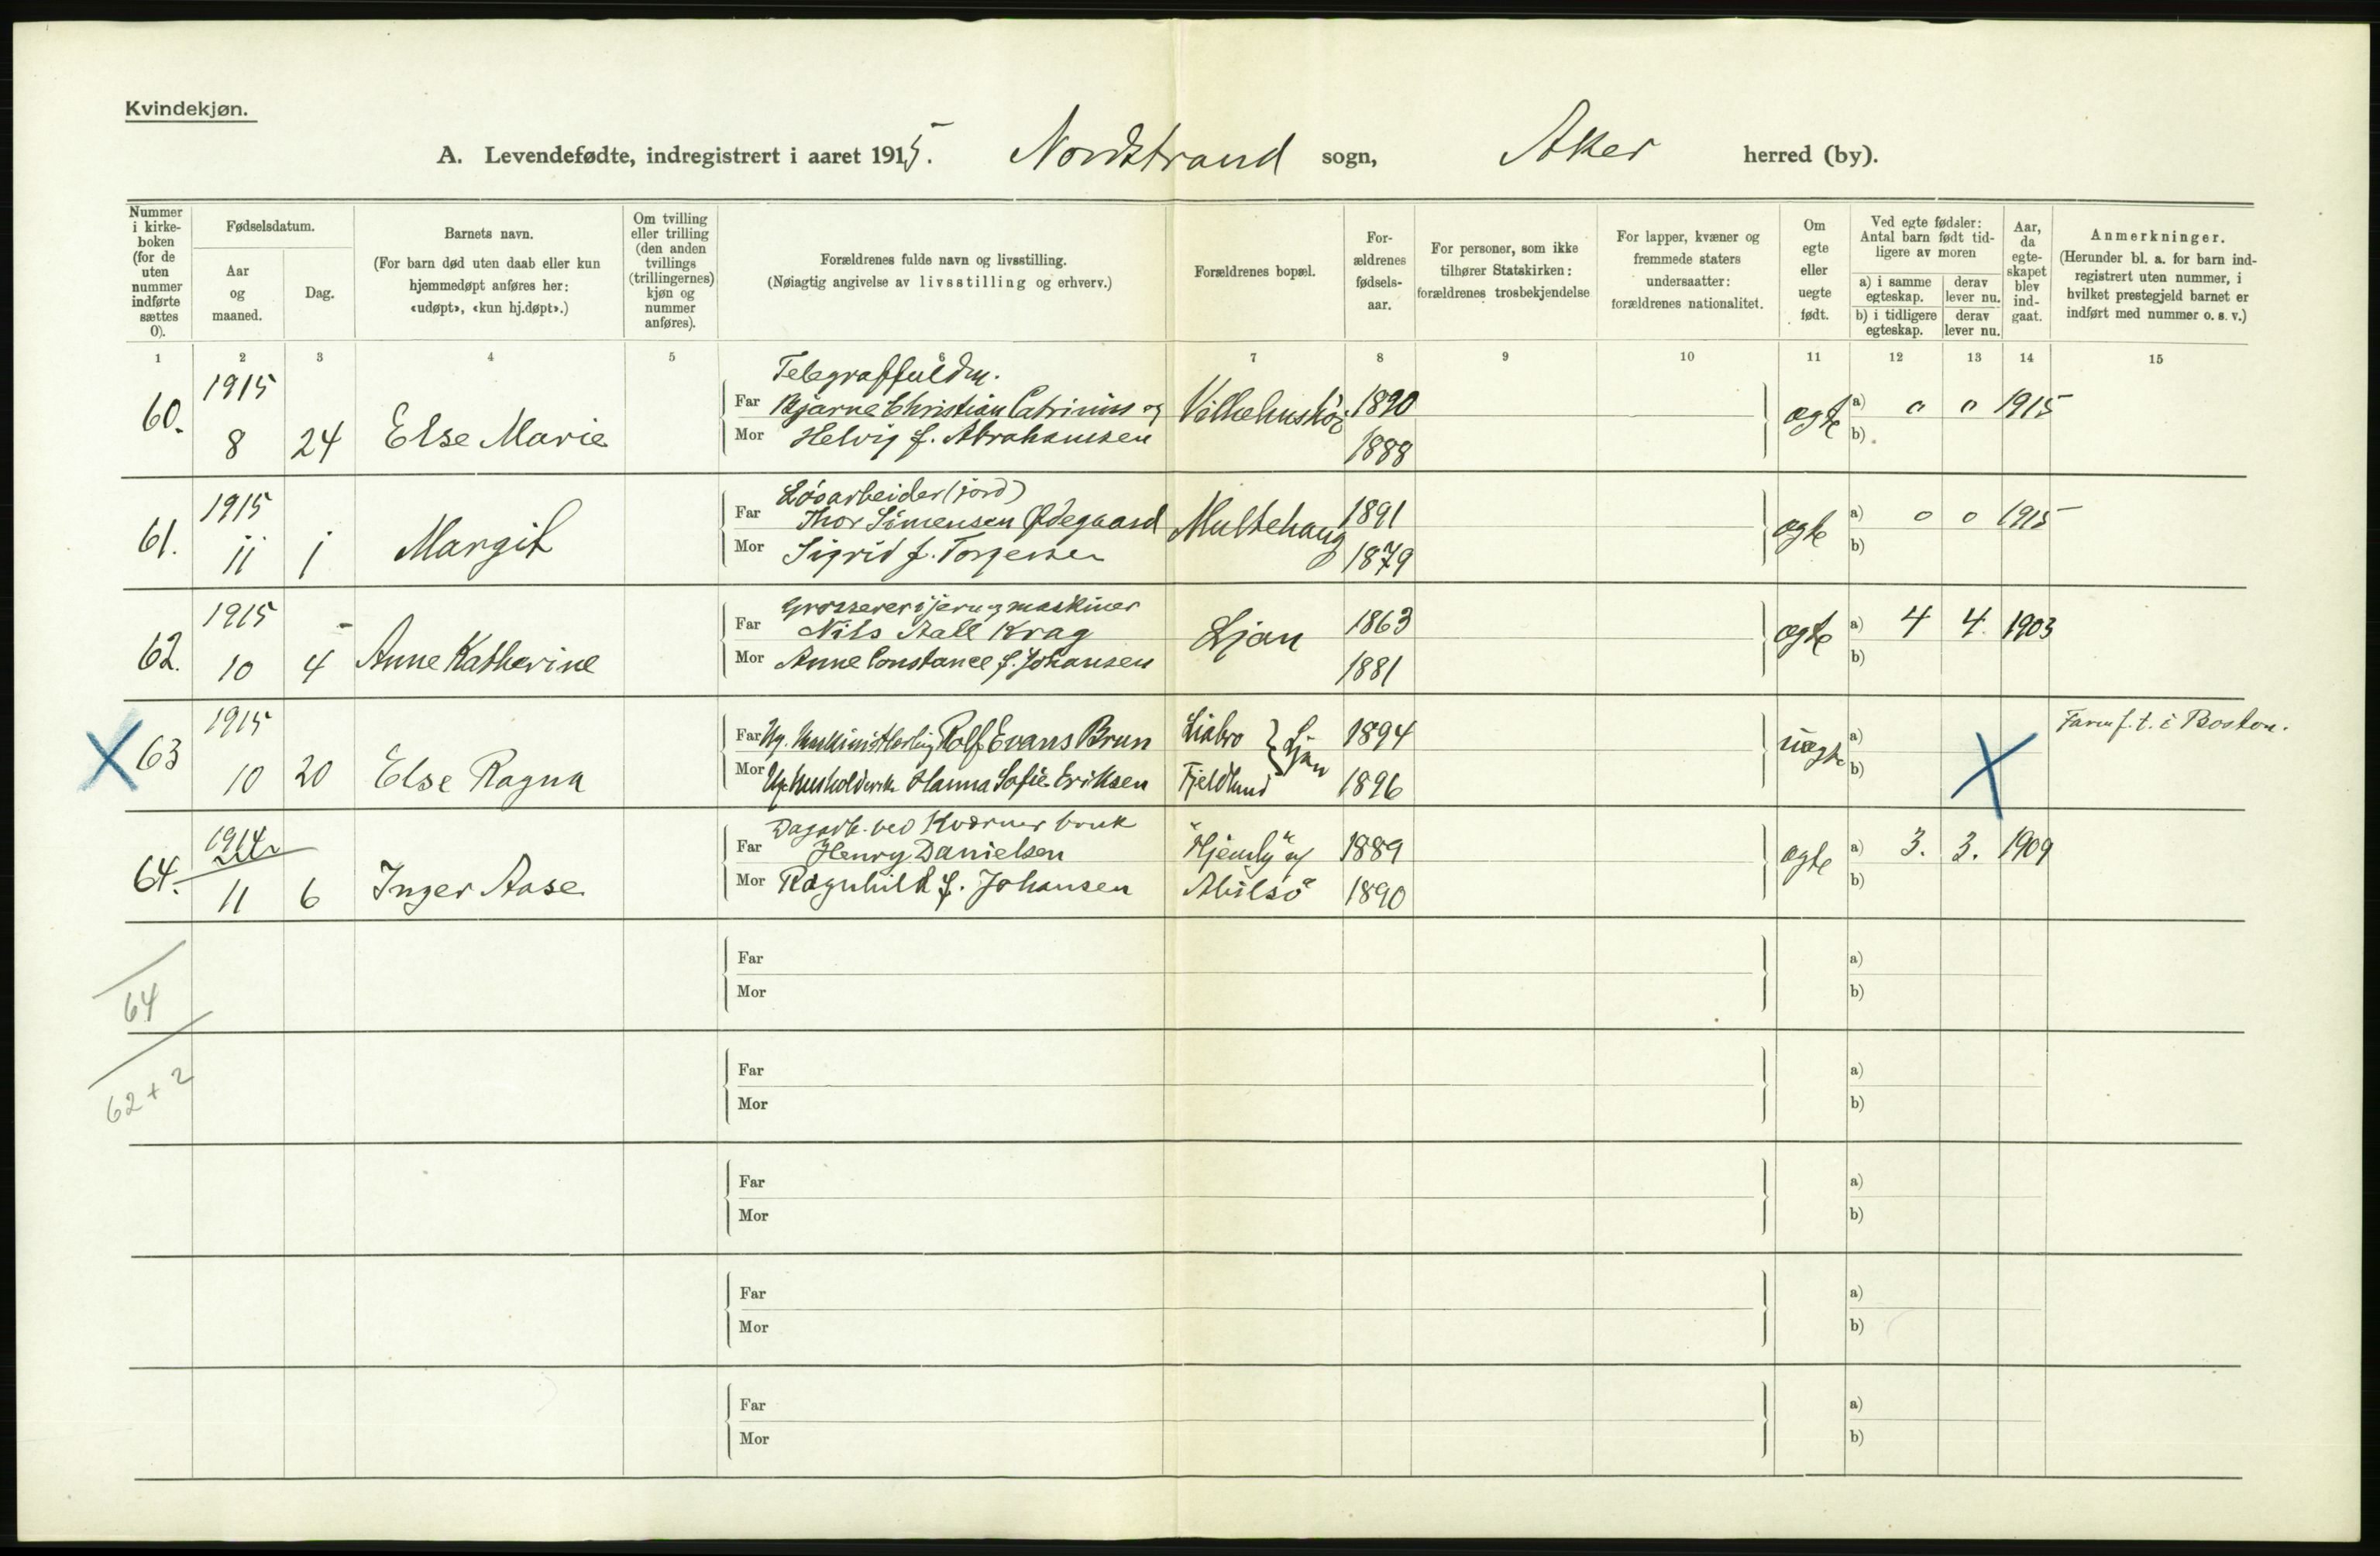 Kvindekjøn.
A. Levendefødte, indregistrert i aaret 1915. Nordstrand sogn, Aker herred (by).
Nummer i kirke-boken (for de uten nummer indførte sættes 0).
Fødselsdatum.
Aar og maaned.
Dag.
Barnets navn.
(For barn død uten daab eller kun hjemmedøpt anføres her: «udøpt», «kun hj.døpt».)
Om tvilling eller trilling (den anden tvillings (trillingernes) kjøn og nummer anføres).
Forældrenes fulde navn og livsstilling.
(Nøiagtig angivelse av livsstilling og erhverv.)
Forældrenes bopæl.
For-ældrenes fødsels-aar.
For personer, som ikke tilhører Statskirken: forældrenes trosbekjendelse
For lapper, kvæner og fremmede staters undersaatter: forældrenes nationalitet.
Om egte eller uegte født.
Ved egte fødsler: Antal barn født tid-ligere av moren
a) i samme egteskap.
derav lever nu.
b) i tidligere egteskap.
derav lever nu.
Aar, da egte-skapet blev ind-gaat.
Anmerkninger.
(Herunder bl. a. for barn ind-registrert uten nummer, i hvilket prestegjeld barnet er indført med nummer o. s. v.)
1 2 3 4 5 6 7 8 9 10 11 12 13 14 15
Telegraffuldm.
60. 1915 8 24 Else Marie
Far Bjarne Christian Catrinius og 1890 ægte a) 0 0 1915
Mor Helvig f. Abrahamsen 1888 b)
Løsarbeider (jord)
61. 1915 11 1 Margit
Far Thor Simensen Ødegaard Multehaug 1891 ægte a) 0 0 1915
Mor Sigrid f. Torgersen 1879 b)
Grosserer i jern og maskiner
62. 1915 10 4 Anne Katharine
Far Nils Aall Krag Ljan 1863 ægte a) 4 4. 1903
Mor Anne Constance f. Johansen 1881 b)
63 1915 10 20 Else Ragna
Far Ug. Rolf Evans Brun Liabro } Ljan 1894 uægte a) Faren f. t. i Boston.
Mor Ug. Hanna Sofie Eriksen Fjeldlund 1896 b)
Dagarb. ved Kværner bruk
64. 1914 11 6 Inger Aase
Far Henry Danielsen "Hjemly" af 1889 ægte a) 3. 3. 1909
Mor Ragnhild f. Johansen Abilsö 1890 b)
64
62 + 2
Far a)
Mor b)
Far a)
Mor b)
Far a)
Mor b)
Far a)
Mor b)
Far a)
Mor b)